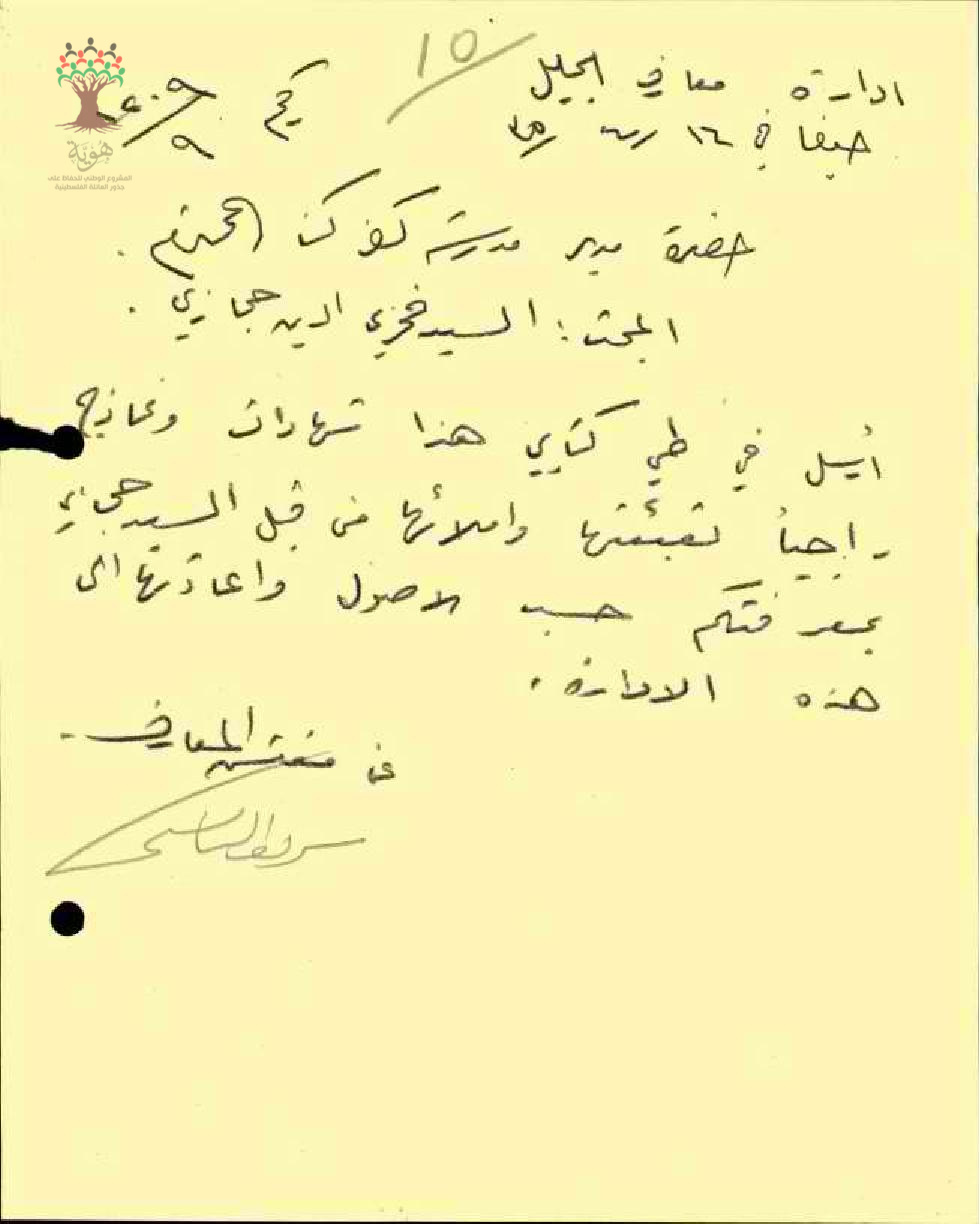 ١٥
ادارة معارف الجليل
حيفا في ١٦
ك ج ٩
٩
هُوِيَّة
المشروع الوطني للحفاظ على
جذور العائلة الفلسطينية
حضرة مدير مدرسة كفركنا المحترم .
المبحث : السيد فخري الدين حجازي .
أرسل في طي كتابي هذا شهادات ونماذج
راجياً تعبئتها واملائها من قبل السيد حجازي
بمعرفتكم حسب الاصول واعادتها الى
هذه الادارة .
عن مفتش المعارف